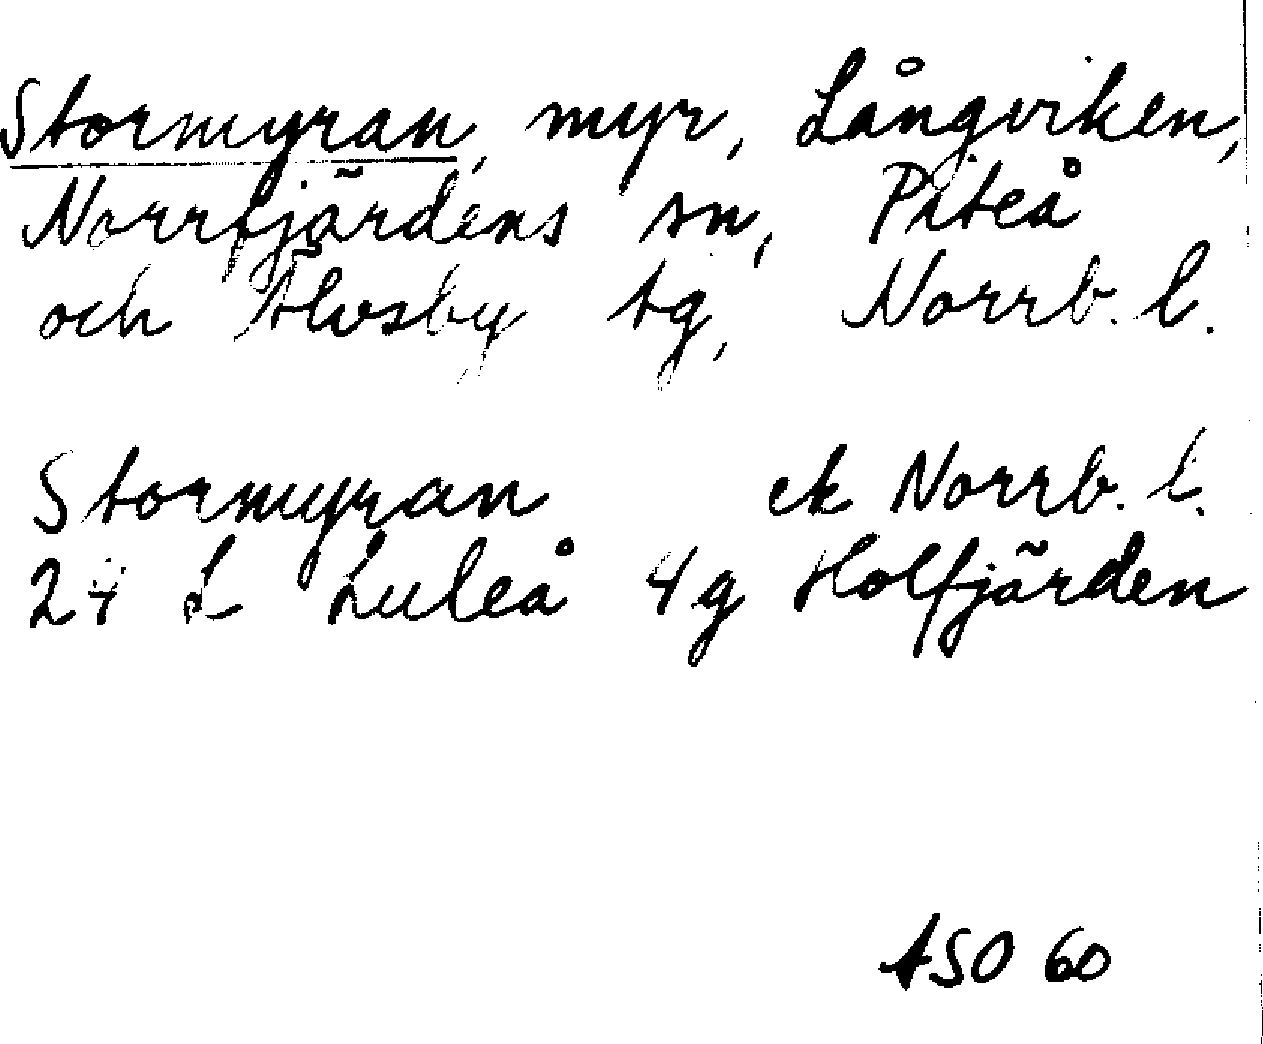 Stormyran, myr, Långviken,
Norrfjärdens sn, Piteå
och Älvsby tg, Norrb. l.
Stormyran ek Norrb. l.
24 L Luleå 4g Holfjärden
ASO 60